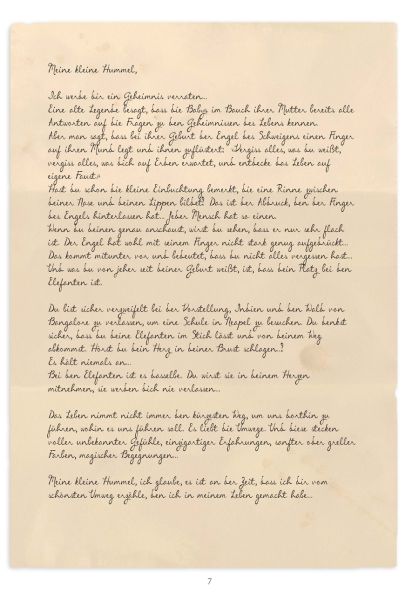 Meine kleine Hummel,
Ich werde dir ein Geheimnis verraten...
Eine alte Legende besagt, dass die Babys im Bauch ihrer Mutter bereits alle
Antworten auf die Fragen zu den Geheimnissen des Lebens kennen.
Aber man sagt, dass bei ihrer Geburt der Engel des Schweigens einen Finger
auf ihren Mund legt und ihnen zuflüstert: »Vergiss alles, was du weißt,
vergiss alles, was dich auf Erden erwartet, und entdecke das Leben auf
eigene Faust.«
Hast du schon die kleine Einbuchtung bemerkt, die eine Rinne zwischen
deiner Nase und deinen Lippen bildet? Das ist der Abdruck, den der Finger
des Engels hinterlassen hat... Jeder Mensch hat so einen.
Wenn du deinen genau anschaust, wirst du sehen, dass er nur sehr flach
ist. Der Engel hat wohl mit seinem Finger nicht stark genug aufgedrückt...
Das kommt mitunter vor und bedeutet, dass du nicht alles vergessen hast...
Und was du von jeher seit deiner Geburt weißt, ist, dass dein Platz bei den
Elefanten ist.
Du bist sicher verzweifelt bei der Vorstellung, Indien und den Wald von
Bangalore zu verlassen, um eine Schule in Neapel zu besuchen. Du denkst
sicher, dass du deine Elefanten im Stich lässt und von deinem Weg
abkommst. Hörst du dein Herz in deiner Brust schlagen..?
Es hält niemals an...
Bei den Elefanten ist es dasselbe. Du wirst sie in deinem Herzen
mitnehmen, sie werden dich nie verlassen...
Das Leben nimmt nicht immer den kürzesten Weg, um uns dorthin zu
führen, wohin es uns führen soll. Es liebt die Umwege. Und diese stecken
voller unbekannter Gefühle, einzigartiger Erfahrungen, sanfter oder greller
Farben, magischer Begegnungen...
Meine kleine Hummel, ich glaube, es ist an der Zeit, dass ich dir vom
schönsten Umweg erzähle, den ich in meinem Leben gemacht habe...
7